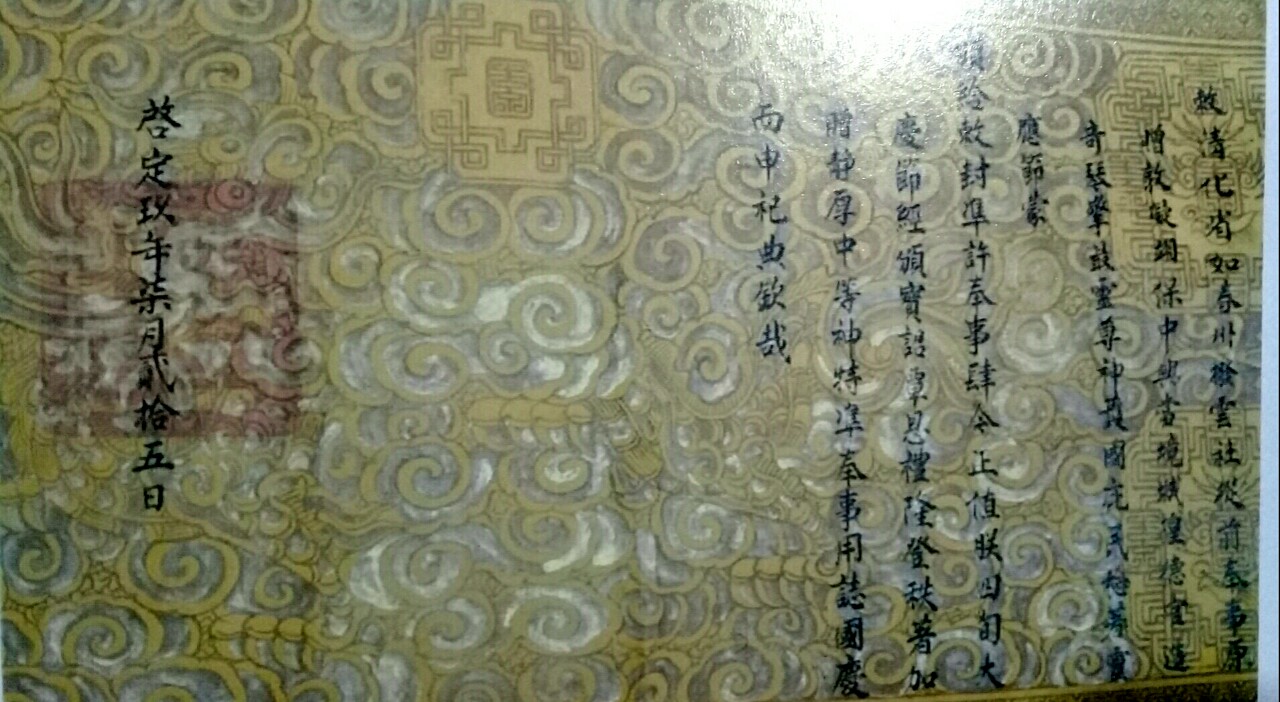 敕清化省如春州撥雲社從前奉事原
贈敦敏翊保中興當境娥皇德宮進
奇琴摯鼓靈尊神護國庇民稔著靈
應節蒙
頒給敕封準許奉事肆今正值朕四旬大
慶節經頒寶詔覃恩禮隆登秩著加
贈靜厚中等神特準奉事用誌國慶
而申祀典欽哉
啓定玖年柒月貳拾五日